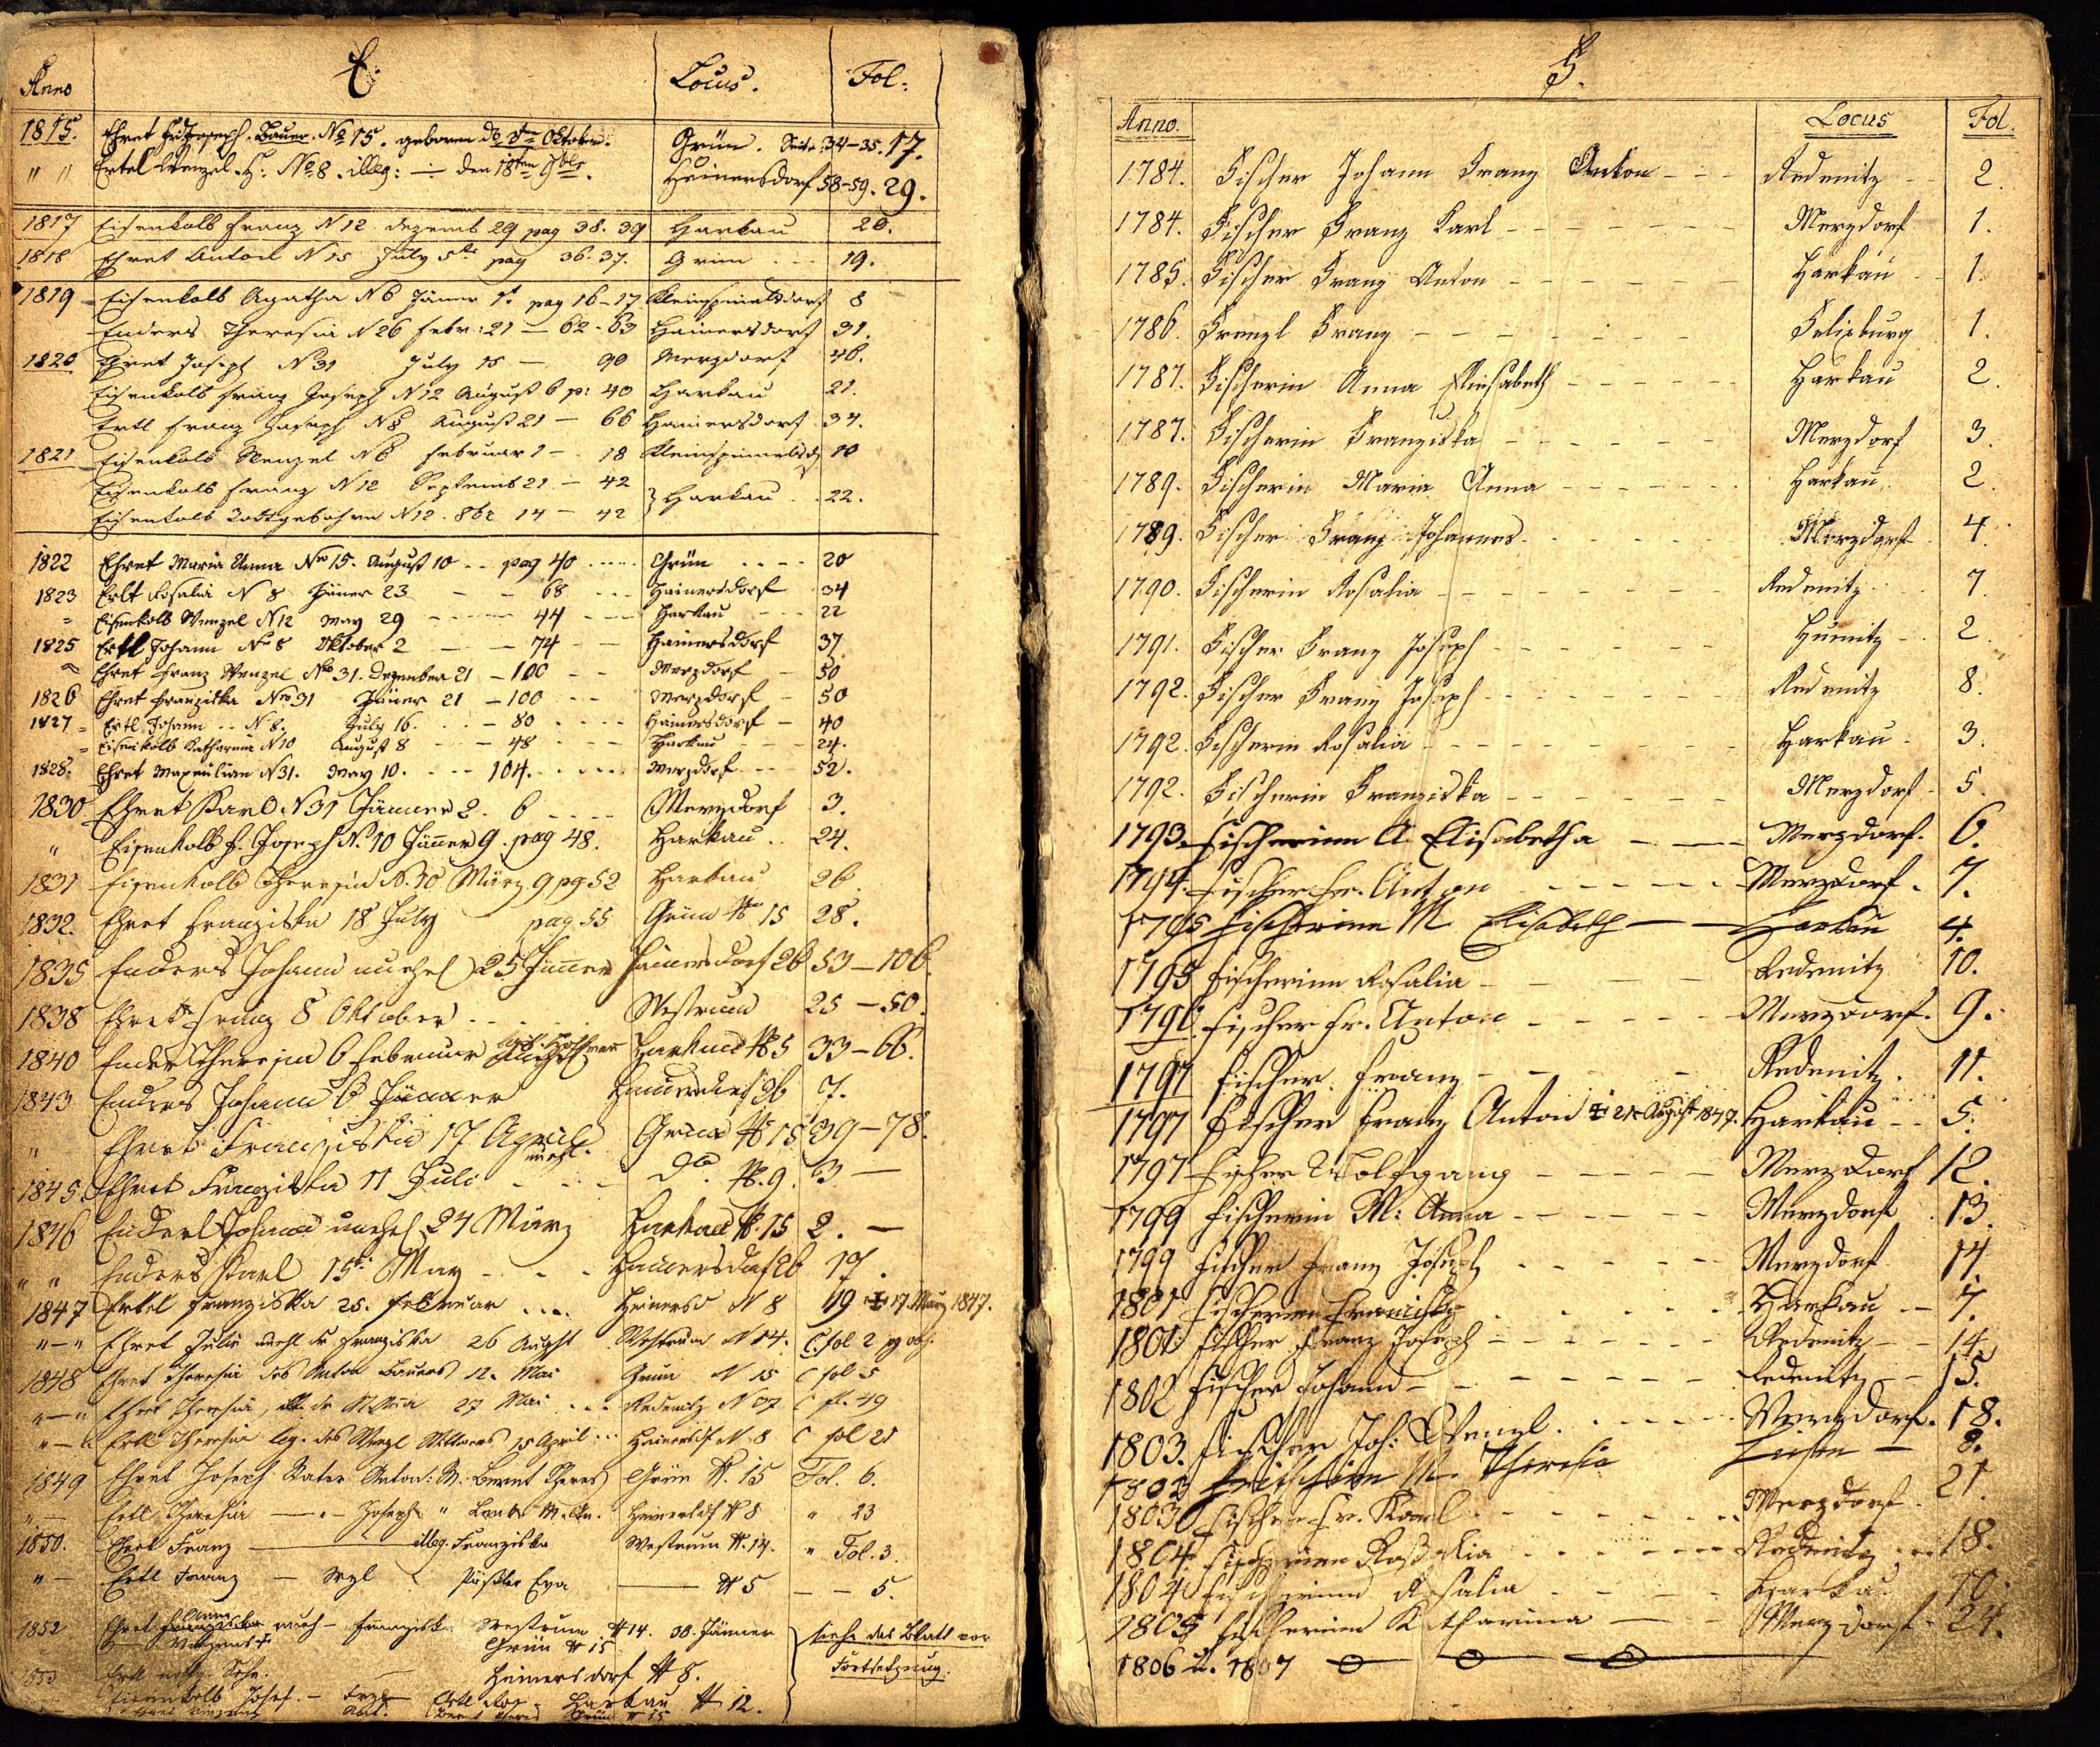 Anno E. Locus. Fol:
1815. Ehret Joseph. Bauer. No 15. geboren Oktober. Grün. Seite 34-35. 17.
" " Ertel Wenzel. No 8. illeg: den 18ten 9ber. Heinersdorf 58-59. 29.
1817 Eisenkolb Franz N 12 Dezemb 29 pag 38. 39 Harkau 20.
1818 Ehret Anton N 15 July 5te pag 36. 37. Grün 19.
1819 Eisenkolb Agatha N 6 Jäner 1t pag 16-17 8
Enders Theresia N 26 Febr: 21 - 62-63 Hainersdorf 31.
1820 Ehret Joseph N 31 July 15 - 90 Merzdorf 46.
Eisenkolb Franz Joseph N 12 August 6 p: 40 Harkau 21.
Ertl Franz Joseph N 8 August 21 - 66 Hainersdorf. 34.
1821 Eisenkolb Wenzel N 6 Februar 1 - 18 10
Eisenkolb Franz N 12 Septemb 21. - 42
Eisenkolb Todtgebohrn N 12. 8br 14 - 42 } Harkau 22.
1822 Ehret Maria Anna Nro 15. August 10 .. pag 40 Grün 20
1823 Ertl Rosalia N 8 Jäner 23 - - 68 Hainersdorf 34
" Eisenkolb Wenzel N 12 May 29 - 44 Harkau 22
1825 Ertl Johann Nro 8 Oktober 2 - 74 Hainersdorf 37.
" Ehret Franz Wenzel Nro 31. Dezember 21 - 100 Merzdorf - 50
1826 Ehret Franziska Nro 31 Jäner 21 - 100 Merzdorf - 50
1827 Ertl Johann N 8. July 16. - 80 Hainersdorf - 40
Eisenkolb Katharina N 10 August 8 - 48 Harkau 24.
1828. Ehret Maximilian N 31. May 10. - 104. Merzdorf 52.
1830 Ehret Karl N 31 Jänner 2. 6 Merzdorf 3.
" Eisenkolb F. Joseph N. 10 Jäner 9. pag 48. Harkau 24.
1831 Eisenkolb Theresia N. 10 März 9 pg 52 Harkau 26
1832. Ehret Franziska 18 July pag. 55 Grün N 15 28.
1835 Enders Johann unehel 25 Jänner Hainersdorf 26 53-106.
1838 Ehret Franz 8 Oktober Westrum 25-50.
1840 Ender Theresia 6 Februar Harkau N 5 33-66.
1843 Enders Johann 6 Jänner Hainersdorf 26 7.
" Ehret Franziska 17 April unehl. Grün N 15 39-78.
1845. Ehret Franziska 11 Juli do. N. 9. 3 -
1846 Enderl Johann unehel 24 März Harkau N. 15 2. -
" " Enders Karl 15t May Hainersdorf 26 17.
1847 Ertel Franziska 25. Februar Heinersd N 8 19 ‡ 17. März 1847.
" - " Ehret Julie unehl der Franziska 26 August Westrum N 14. C. fol 2
1848 Ehret Theresia des Anton Bauers 12. Mai Grün N 15 C fol 5
" - " Ehret Theresia, 27 Mai Redenitz N 07 C fl. 49
" - " Ertl Theresia leg. des 15 April Heinersdf N. 8 C fol 21
1849 Ehret Joseph Vater Anton: M: Theres Grün N. 15 Fol. 6.
" - Ertl Theresia - " - Joseph " Heinersdf N 8 " 23
1850. Ehret Franz illeg. Franziska Westrum N. 14. " Fol. 3.
" - Ertl Franz - Wzl Pößler Eva N 5 - - 5.
1852 Ehret Anna uneh - Franziska Westrum N 14. 30. Jänner } siehe das Blatt vor
Vinzens + Grün N 15 Fortsetzung.
1853 Ertl Heinersdorf N 8.
Eisenkolb Josef. - Ertl Harkau N 12.
Grün N 15
F.
Anno. Locus Fol.
1784. Fischer Johann Franz Anton Redenitz 2.
1784. Fischer Franz Karl Merzdorf 1.
1785. Fischer Franz Anton Harkau 1.
1786. Frenzl Franz Felixburg 1.
1787. Fischerin Anna Elisabeth Harkau 2.
1787. Fischerin Franziska Merzdorf 3.
1789. Fischerin Maria Anna Harkau 2.
1789. Fischer Franz Johannes Merzdorf 4.
1790. Fischerin Rosalia Redenitz 7.
1791. Fischer Franz Joseph Humnitz 2.
1792. Fischer Franz Joseph Redenitz 8.
1792. Fischerin Rosalia Harkau 3.
1792. Fischerin Franziska Merzdorf 5.
1793. Fischerinn A. Elisabetha Merzdorf. 6.
1794. Fischer Fr. Anton Merzdorf. 7.
1795 Fischerinn M Elisabeth Harkau 4.
1795 Fischerinn Rosalia Redenitz 10.
1796. Fischer Fr. Anton Merzdorf. 9.
1797 Fischer Franz Redenitz. 11.
1797 Fischer Franz Anton ‡ 21 August 1847. Harkau 5.
1797 Fischer Wolfgang Merzdorf 12.
1799 Fischerin M: Anna Merzdorf 13.
1799 Fischer Franz Joseph Merzdorf 14.
1801 Fischerin Francisca Harkau 7.
1801 Fischer Franz Joseph Redenitz 14.
1802 Fischer Johann Redenitz 15.
1803. Fischer Joh: Wenzl. Merzdorf. 18.
1803 M. Theresia 8.
1803 Fischer Fr. Karl Merzdorf. 21.
1804 Fischerinn Rosalia Redenitz 18.
1804 Fischerinn Rosalia Harkau 10.
1805 Fischerinn Katharina Merzdorf. 24.
1806 u. 1807 — 0 — 0 — 0 —